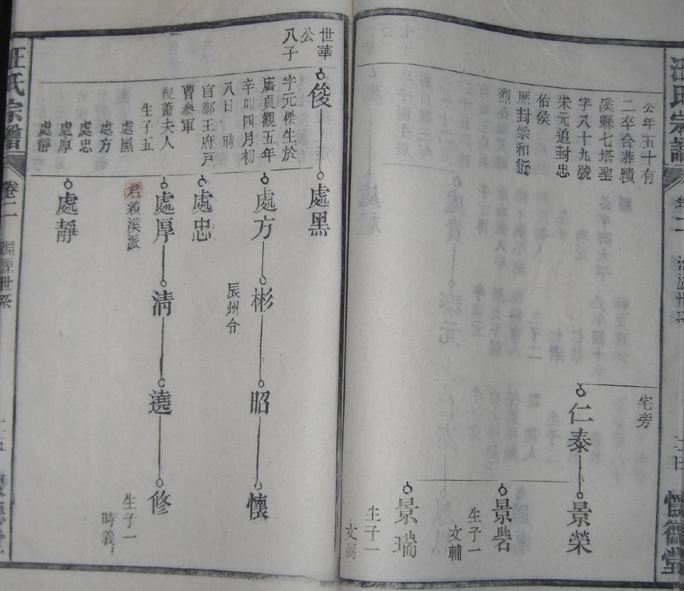 汪氏宗譜
公年五十有
二卒合葬績
溪縣七塔聖
字八十九號
宋元追封忠
佑侯
歷封崇和衍
烈
宅旁
仁泰
景榮
景喾
生子一
文輔
景瑞
生子一
文弼
懷德堂
世華
公
八子
俊
字元傑生於
唐貞觀五年
辛卯四月初
八日 時
官鄭王府戶
曹參軍
配董夫人
生子五
處黑
處方
處忠
處厚
處靜
處黑
處方
彬
辰州令
昭
懷
處忠
處厚
君籟溪派
清
遶
修
生子一
時義
處靜
汪氏宗譜
卷二
淵源世系